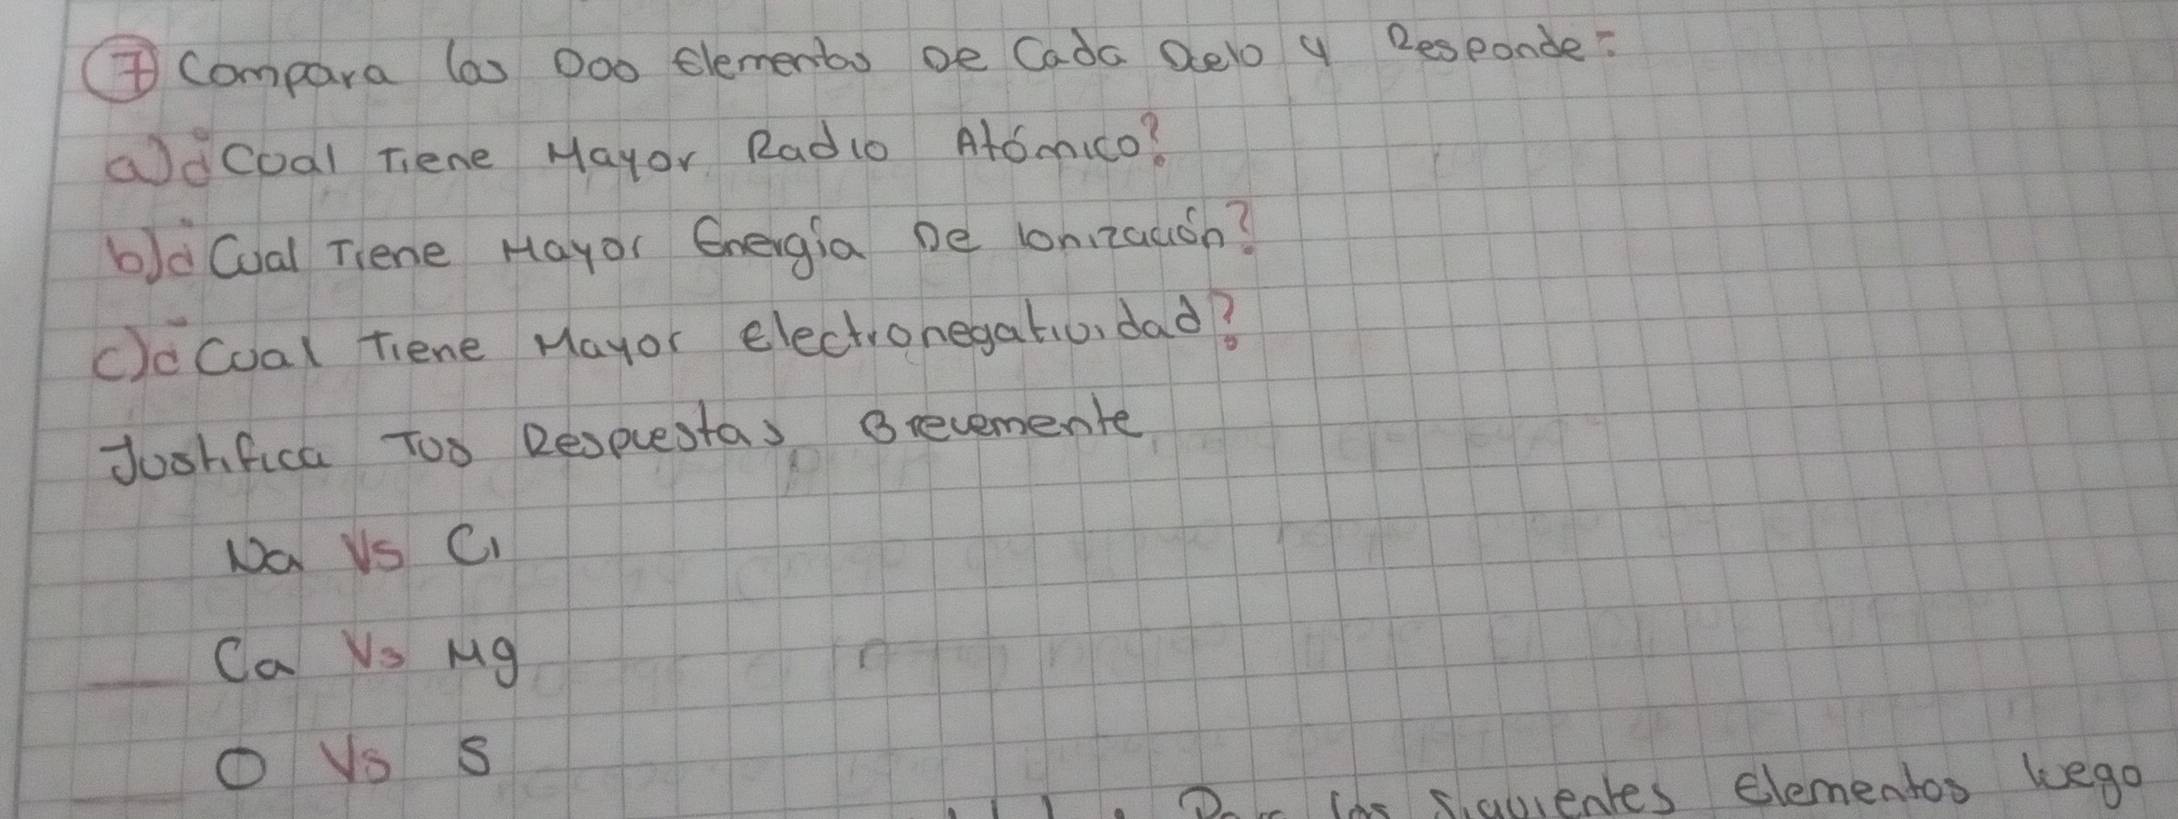 ⑦ Compara los Dos elementos De Cada Duelo y Responde:
a) ¿Cual Tiene Mayor Radio Atómico?
b) ¿Cual Tiene Mayor Energía De Ionización?
c) ¿Cual Tiene Mayor electronegatividad?
Justifica Tus Respuestas Brevemente
Na Vs Cl
Ca Vs Mg
O Vs S
los Siguientes Elementos luego